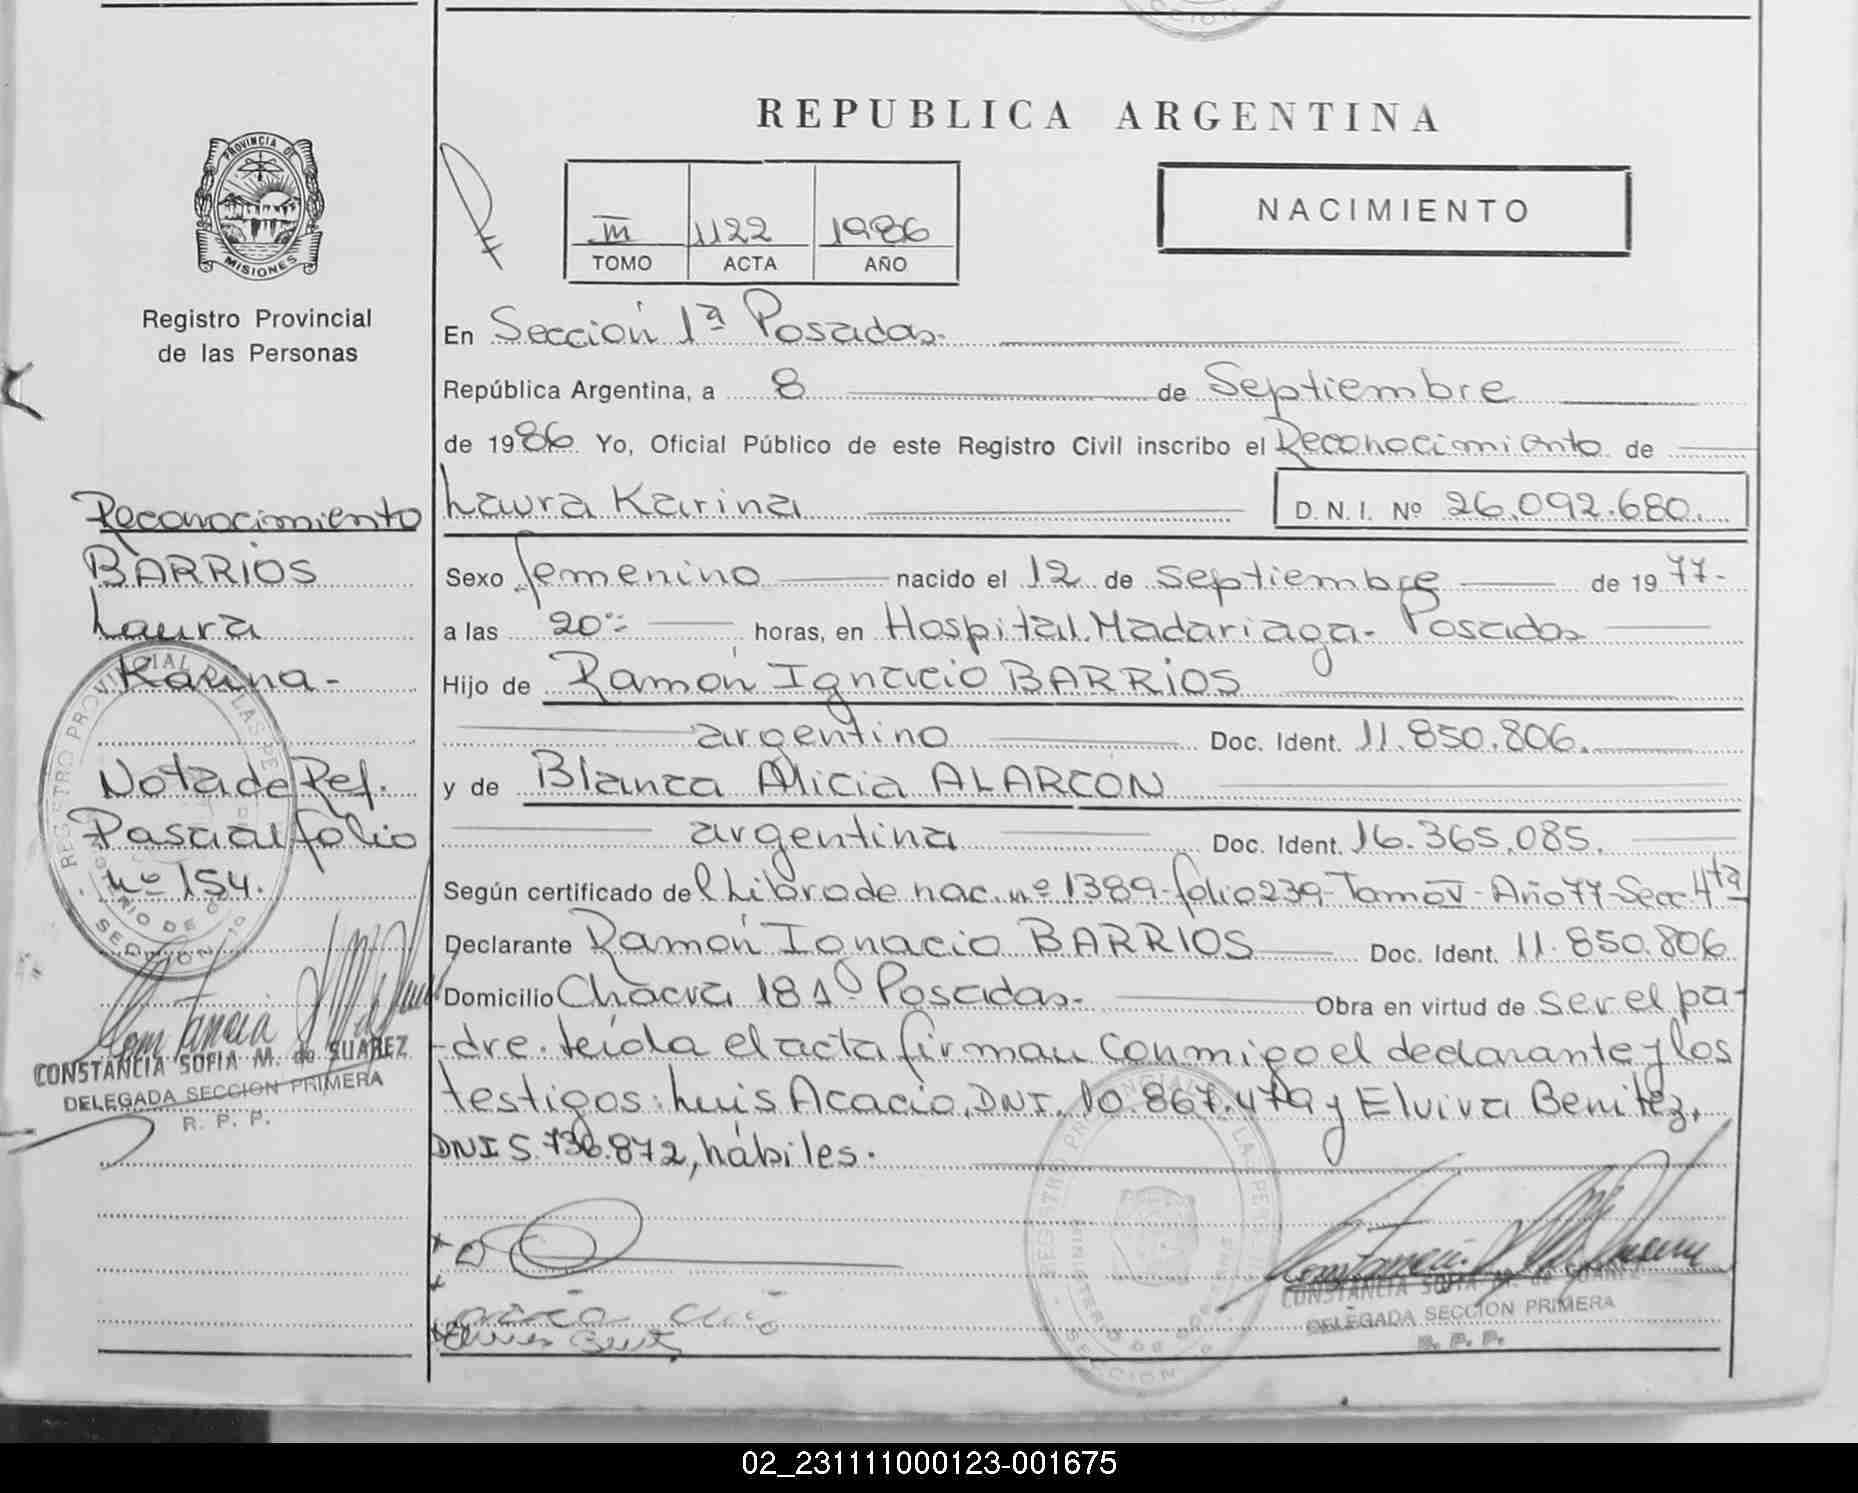 REPUBLICA ARGENTINA
PROVINCIA DE
MISIONES
Registro Provincial
de las Personas
III 1122 1986
TOMO ACTA AÑO
NACIMIENTO
En Sección 1ª Posadas.
República Argentina, a 8 de Septiembre
de 1986 Yo, Oficial Público de este Registro Civil inscribo el Reconocimiento de
Laura Karina D.N.I. Nº 26.092.680.
Sexo femenino nacido el 12 de septiembre de 1977-
a las 20:= horas, en Hospital Madariaga- Posadas
Hijo de Ramón Ignacio BARRIOS
argentino Doc. Ident. 11.850.806.
y de Blanca Alicia ALARCON
argentina Doc. Ident. 16.365.085.
Según certificado del Libro de nac. nº 1389-folio 239-Tomo V-Año 77-Secc 4ta
Declarante Ramón Ignacio BARRIOS Doc. Ident. 11.850.806
Domicilio Chacra 181º Posadas.- Obra en virtud de ser el pa-
-dre. leída el acta firman conmigo el declarante y los
testigos: Luis Acacio, DNI. 10.867.479 y Elviva Benitez,
DNI 5.736.872, hábiles.
Reconocimiento
BARRIOS
Laura
Karina-
Nota de Ref.
Pasa al folio
nº 154.
CONSTANCIA SOFIA M. de SUAREZ
DELEGADA SECCION PRIMERA
R. P. P.
CONSTANCIA SOFIA M. de SUAREZ
DELEGADA SECCION PRIMERA
R. P. P.
02_231111000123-001675